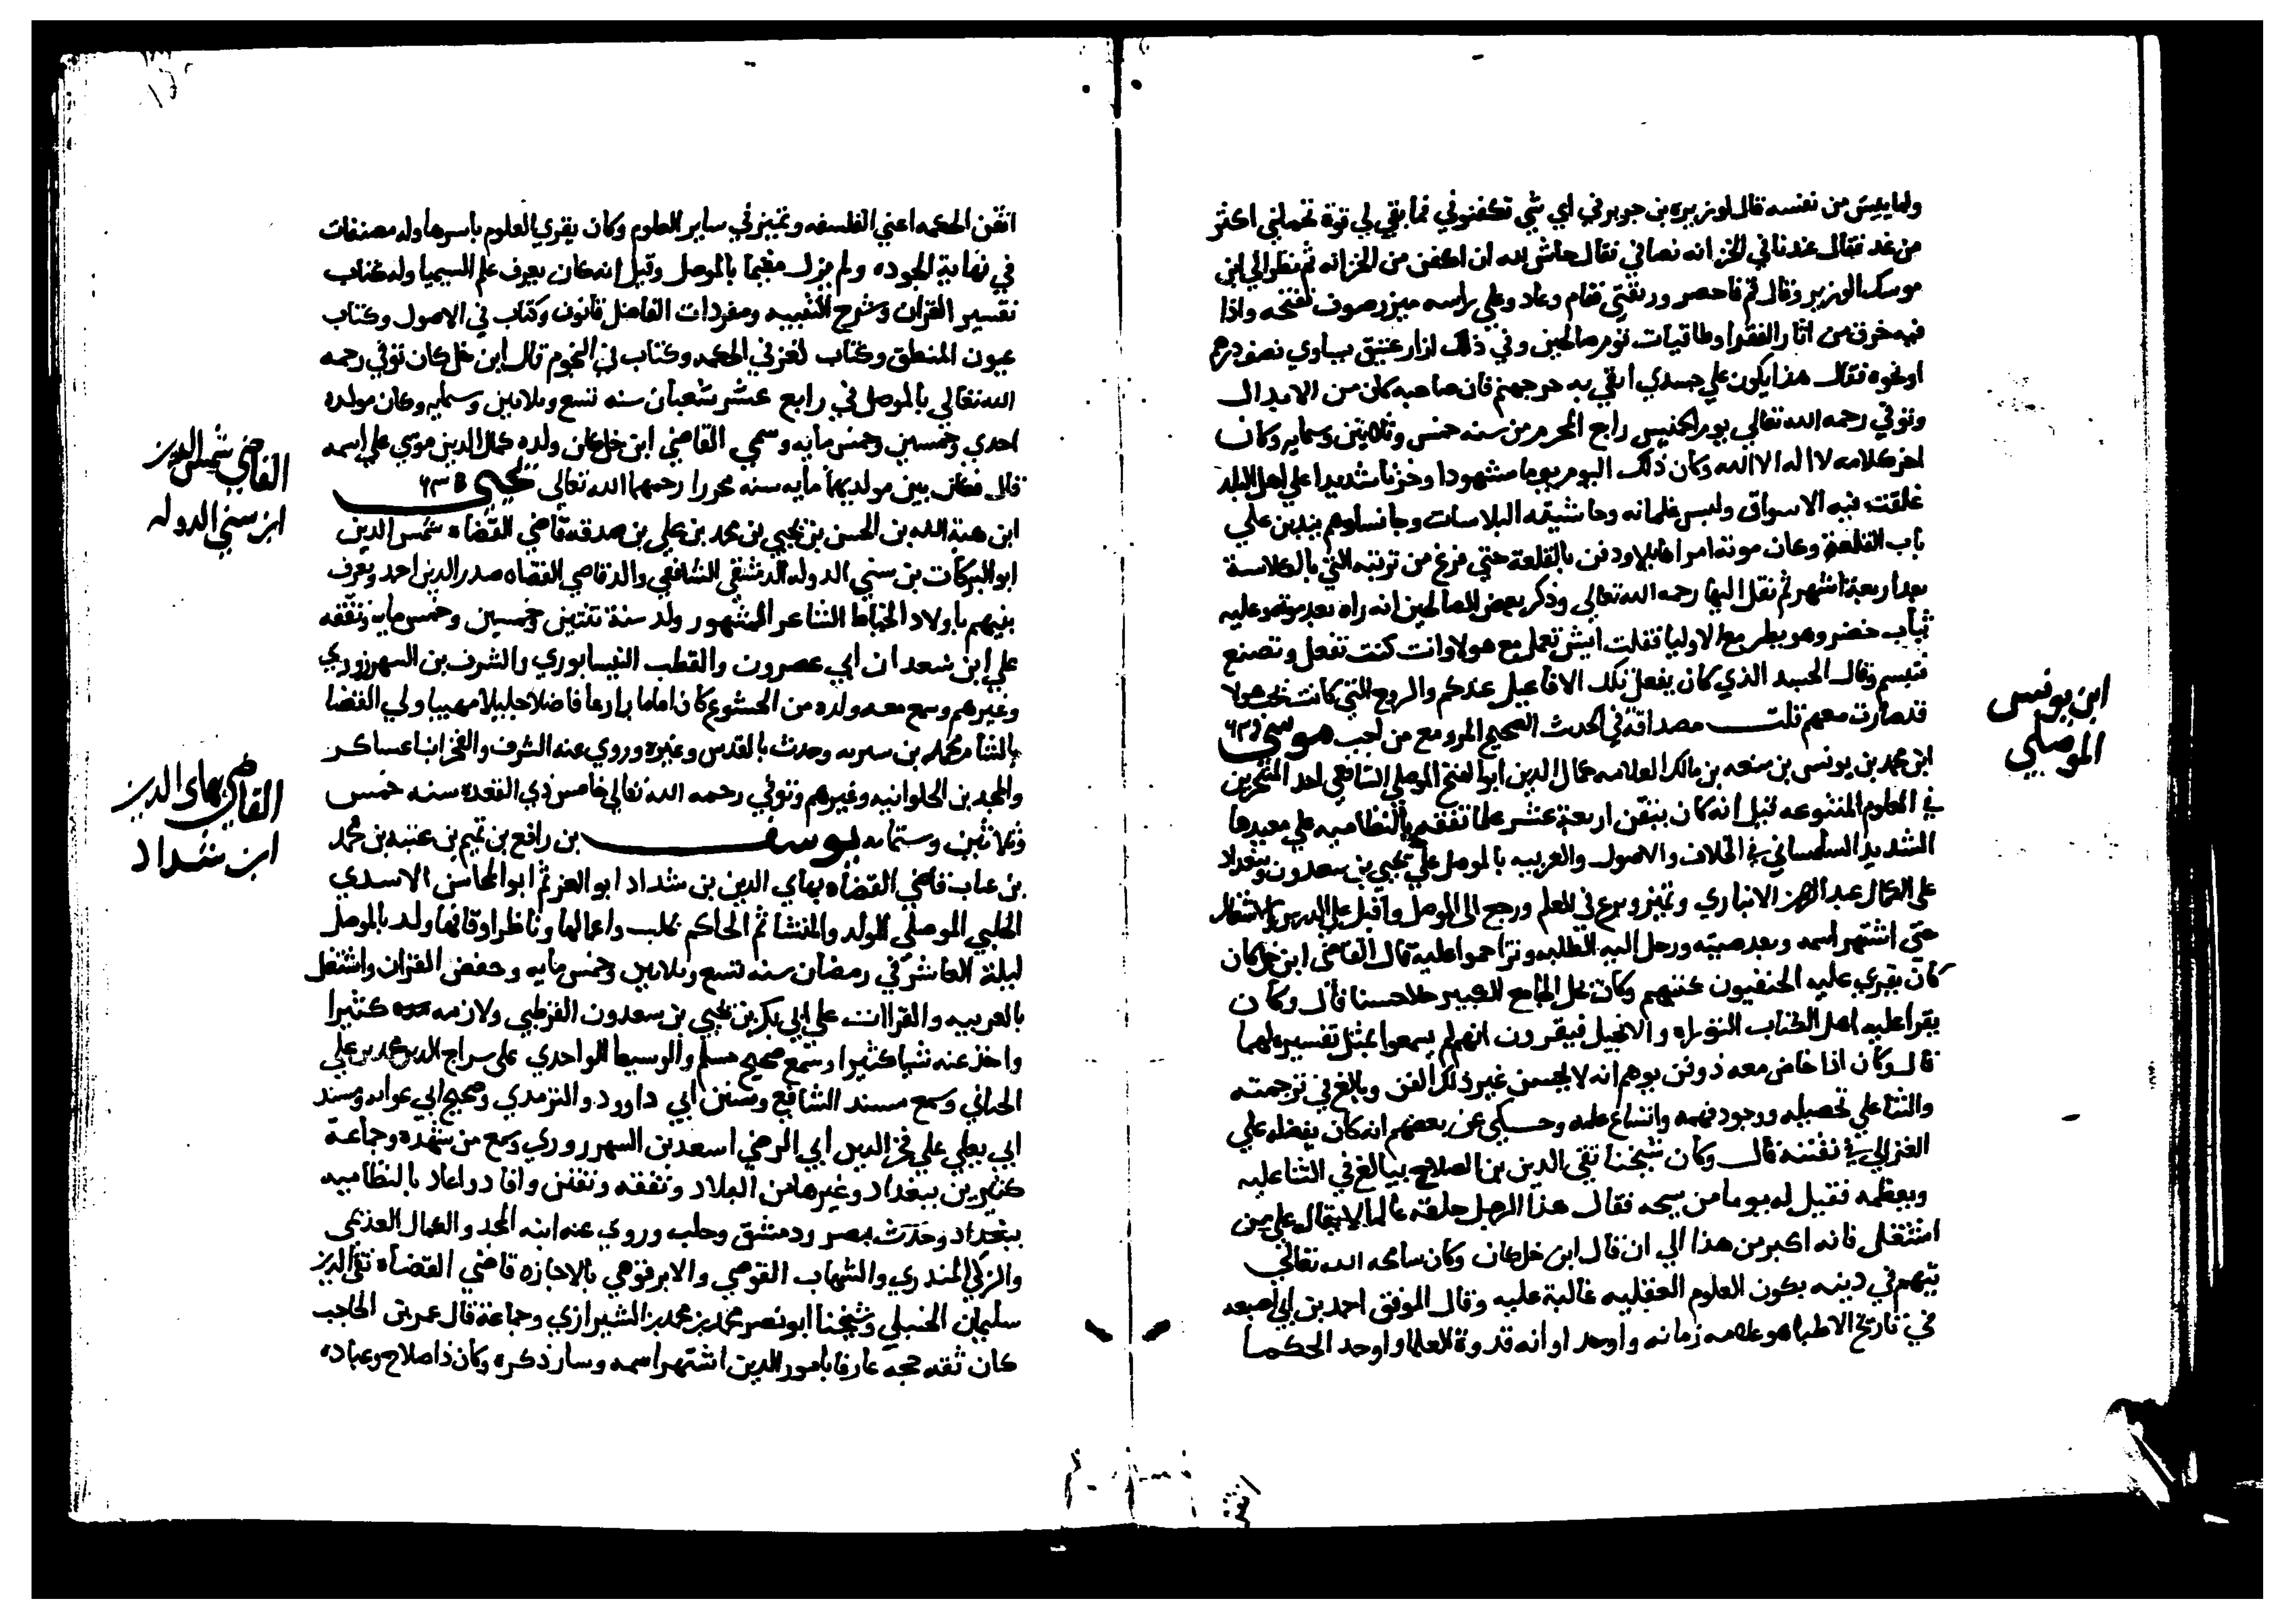 ولما يئس من نفسه قال لوزيره بن جوبر في اي شي تكفنوني فما بقي لي قوة تحملني اكثر
من غد فقال عندنا في الخزانه نصافي فقال حاش لله ان اكفن من الخزانه ثم نظر الي ابن
موسك الوزير وقال قم فاحضر ورفقتي فقام وعاد وعلي راسه ميزر صوف ففتحه واذا
فيه خرق من اثار الفقرا وطاقيات قوم صالحين وفي ذلك ازار عتيق يساوي نصف درهم
او نحوه فقال هذا يكون علي جسدي اتقي به حر جهنم فان صاحبه كان من الابدال
وتوفي رحمه الله تعالي يوم الخميس رابع المحرم من سنه خمس وثلاثين وستمايه وكان
اخر كلامه لا اله الا الله وكان ذلك اليوم يوما مشهودا وحزنا شديدا علي اهل البلد
غلقت فيه الاسواق ولبس غلمانه وحاشيته البلاسات وجا نساوهم يندبن علي
باب القلعة وكان موته امرا هايلا ودفن بالقلعة حتي فرغ من تربته التي بالكلاسة
بعد اربعة اشهر ثم نقل اليها رحمه الله تعالي وذكر بعض الصالحين انه راه بعد موته وعليه
ثياب خضر وهو يطير مع الاوليا فقلت ايش تعمل مع هولا وانت كنت تفعل وتصنع
فتبسم وقال الجسد الذي كان يفعل تلك الافاعيل عندكم والروح التي كانت تحب هولا
قد صارت معهم قلت مصداقه في الحدث الصحيح المرو مع من احب موسي
ابن محمد بن يونس بن منعه بن مالك العلامه كمال الدين ابو الفتح الموصلي الشافعي احد المتبحرين
في العلوم المتنوعه قيل انه كان يتقن اربعة عشر علما تفقه بالنظاميه علي معيدها
الشديد السلماسي في الخلاف والاصول والعربيه بالموصل علي يحيي بن سعدون وببغداد
علي الكمال عبد الرحمن الانباري وتميز وبرع في العلم ورجع الي الموصل واقبل علي الدرس والاشتغال
حتي اشتهر اسمه وبعد صيته ورحل اليه الطلبه وتزاحموا عليه قال القاضي ابن خلكان
كان يقري عليه الحنفيون كتبهم وكان يحل الجامع الكبير حلا حسنا قال وكان
يقرا عليه اهل الكتاب التوراه والانجيل فيقرون انهم لم يسمعوا بمثل تفسيره لهما
قال وكان اذا خاض معه ذو فن يوهم انه لا يحسن غير ذلك الفن وبالغ في ترجمته
والثنا علي تحصيله ووجود فهمه واتساع علمه وحكي عن بعضهم انه كان يفضله علي
الغزالي في تفننه قال وكان شيخنا تقي الدين بن الصلاح يبالغ في الثنا عليه
ويعظمه فقيل له يوما من شيخه فقال هذا الرجل خلقه عالما لا يقال علي من
اشتغل فانه اكبر من هذا الي ان قال ابن خلكان وكان سامحه الله تعالي
يتهم في دينه بكون العلوم العقليه غالبة عليه وقال الموفق احمد بن ابي اصبعه
في تاريخ الاطبا هو علامه زمانه واوحد اوانه قدوة العلما واوحد الحكما
ابن يونس
الموصلي
اتقن الحكمه اعني الفلسفه وتميز في ساير العلوم وكان يقري العلوم باسرها وله مصنفات
في نهاية الجوده ولم يزل مقيما بالموصل وقيل انه كان يعرف علم السيميا وله كتاب
تفسير القران وشرح التنبيه ومفردات الفاضل قانون وكتاب في الاصول وكتاب
عيون المنطق وكتاب لغز في الحكمه وكتاب في النجوم قال ابن خلكان توفي رحمه
الله تعالي بالموصل في رابع عشر شعبان سنه تسع وثلاثين وستمايه وكان مولده
احدي وخمسين وخمس مايه وسمي القاضي ابن خلكان ولده كمال الدين موسي علي اسمه
قال فكان بين مولديهما مايه سنه محررا رحمهما الله تعالي يحيي
ابن هبة الله بن الحسن بن يحيي بن محمد بن علي بن صدقه قاضي القضاه شمس الدين
ابو البركات بن سني الدوله الدمشقي الشافعي والد قاضي القضاه صدر الدين احمد ويعرف
بنيهم باولاد الخياط الشاعر المشهور ولد سنة ثنتين وخمسين وخمس مايه وتفقه
علي ابن سعد ان ابي عصرون والقطب النيسابوري والشرف بن السهرزوري
وغيرهم وسمع معه ولده من الخشوع كان اماما بارعا فاضلا جليلا مهيبا ولي القضا
بالشام وحدث بالقدس وغيره وروي عنه الشرف والفخر ابنا عساكر
والمجد بن الحلوانيه وغيرهم وتوفي رحمه الله تعالي خامس ذي القعده سنه خمس
وثلاثين وستمايه يوسف بن رافع بن تميم بن عتبه بن محمد
بن عتاب قاضي القضاه بهاي الدين بن شداد ابو العز ثم ابو المحاسن الاسدي
الحلبي الموصلي المولد والمنشا ثم الحاكم بحلب واعمالها وناظر اوقافها ولد بالموصل
ليلة العاشر في رمضان سنه تسع وثلاثين وخمس مايه وحفض القران واشتغل
بالعربيه والقراات علي ابي بكر بن يحيي بن سعدون القرطبي ولازمه كثيرا
واخذ عنه شيا كثيرا وسمع صحيح مسلم والوسيط للواحدي علي سراج الدين محمد بن علي
الجياني وسمع مسند الشافع وسنن ابي داوود والترمذي وصحيح ابي عوانه ومسند
ابي يعلي علي فخر الدين ابي الرضي اسعد بن السهرروري وسمع من شهده وجماعة
كثيرين ببغداد وغيرها من البلاد وتفقه وتفنن وافاد واعاد بالنظاميه
ببغداد وحدث بمصر ودمشق وحلب وروي عنه ابنه المجد والكمال العديمي
والزكي المنذري والشهاب القوصي والابرقوهي بالاجازه قاضي القضاه تقي الدين
سليمان الحنبلي وشيخنا ابو نصر محمد بن محمد بن الشيرازي وجماعة قال عمر بن الحاجب
كان ثقه حجه عارفا بامور الدين اشتهر اسمه وسار ذكره وكان ذا صلاح وعباده
القاضي شمس الدين
ابن سني الدوله
القاضي بهاي الدين
ابن شداد